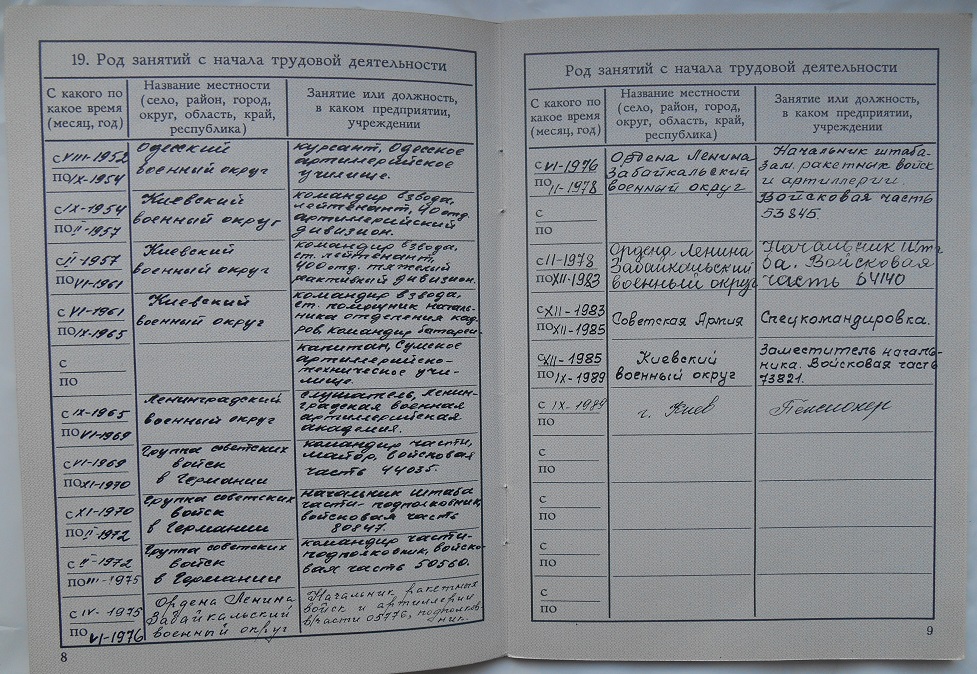 19. Род занятий с начала трудовой деятельности
С какого по
какое время
(месяц, год)
Название местности
(село, район, город,
округ, область, край,
республика)
Занятие или должность,
в каком предприятии,
учреждении
с VIII-1952
по IX-1954
Одесский
военный округ
курсант, Одесское
артиллерийское
училище.
с IX-1954
по II-1957
Киевский
военный округ
командир взвода,
лейтенант, 40 отд.
артиллерийский
дивизион.
с II-1957
по VI-1961
Киевский
военный округ
командир взвода,
ст. лейтенант,
400 отд. тяжский
реактивный дивизион.
с VI-1961
по IX-1965
Киевский
военный округ
командир взвода,
ст. помощник началь-
ника отделения кад-
ров, командир батареи-
с
по
капитан, Сумское
артиллерийско-
техническое учи-
лище.
с IX-1965
по VI-1969
Ленинградский
военный округ
слушатель, Ленин-
градская военная
артиллерийская
академия.
с VI-1969
по XI-1970
Группа советских
войск
в Германии
командир части,
майор, войсковая
часть 44035.
с XI-1970
по II-1972
Группа советских
войск
в Германии
начальник штаба
части- подполковник,
войсковая часть
80847.
с II-1972
по III-1975
Группа советских
войск
в Германии
командир части-
подполковник, войско-
вая часть 50560.
с IV-1975
по VI-1976
Ордена Ленина
Забайкальский
военный округ
Начальник ракетных
войск и артиллерии
в/части 05776, подполков-
ник.
8
Род занятий с начала трудовой деятельности
С какого по
какое время
(месяц, год)
Название местности
(село, район, город,
округ, область, край,
республика)
Занятие или должность,
в каком предприятии,
учреждении
с VI-1976
по II-1978
Ордена Ленина
Забайкальский
военный округ
Начальник штаба-
зам. ракетных войск
и артиллерии.
с
по
Войсковая часть
53845.
с II-1978
по XII-1983
Ордена Ленина
Забайкальский
военный округ
Начальник шта
ба. Войсковая
часть 54140
с XII-1983
по XII-1985
Советская Армия
Спецкомандировка.
с XII-1985
по IX-1989
Киевский
военный округ
Заместитель началь-
ника. Войсковая часть
73821.
с IX-1989
по
г. Киев
Пенсионер
с
по
с
по
с
по
с
по
9